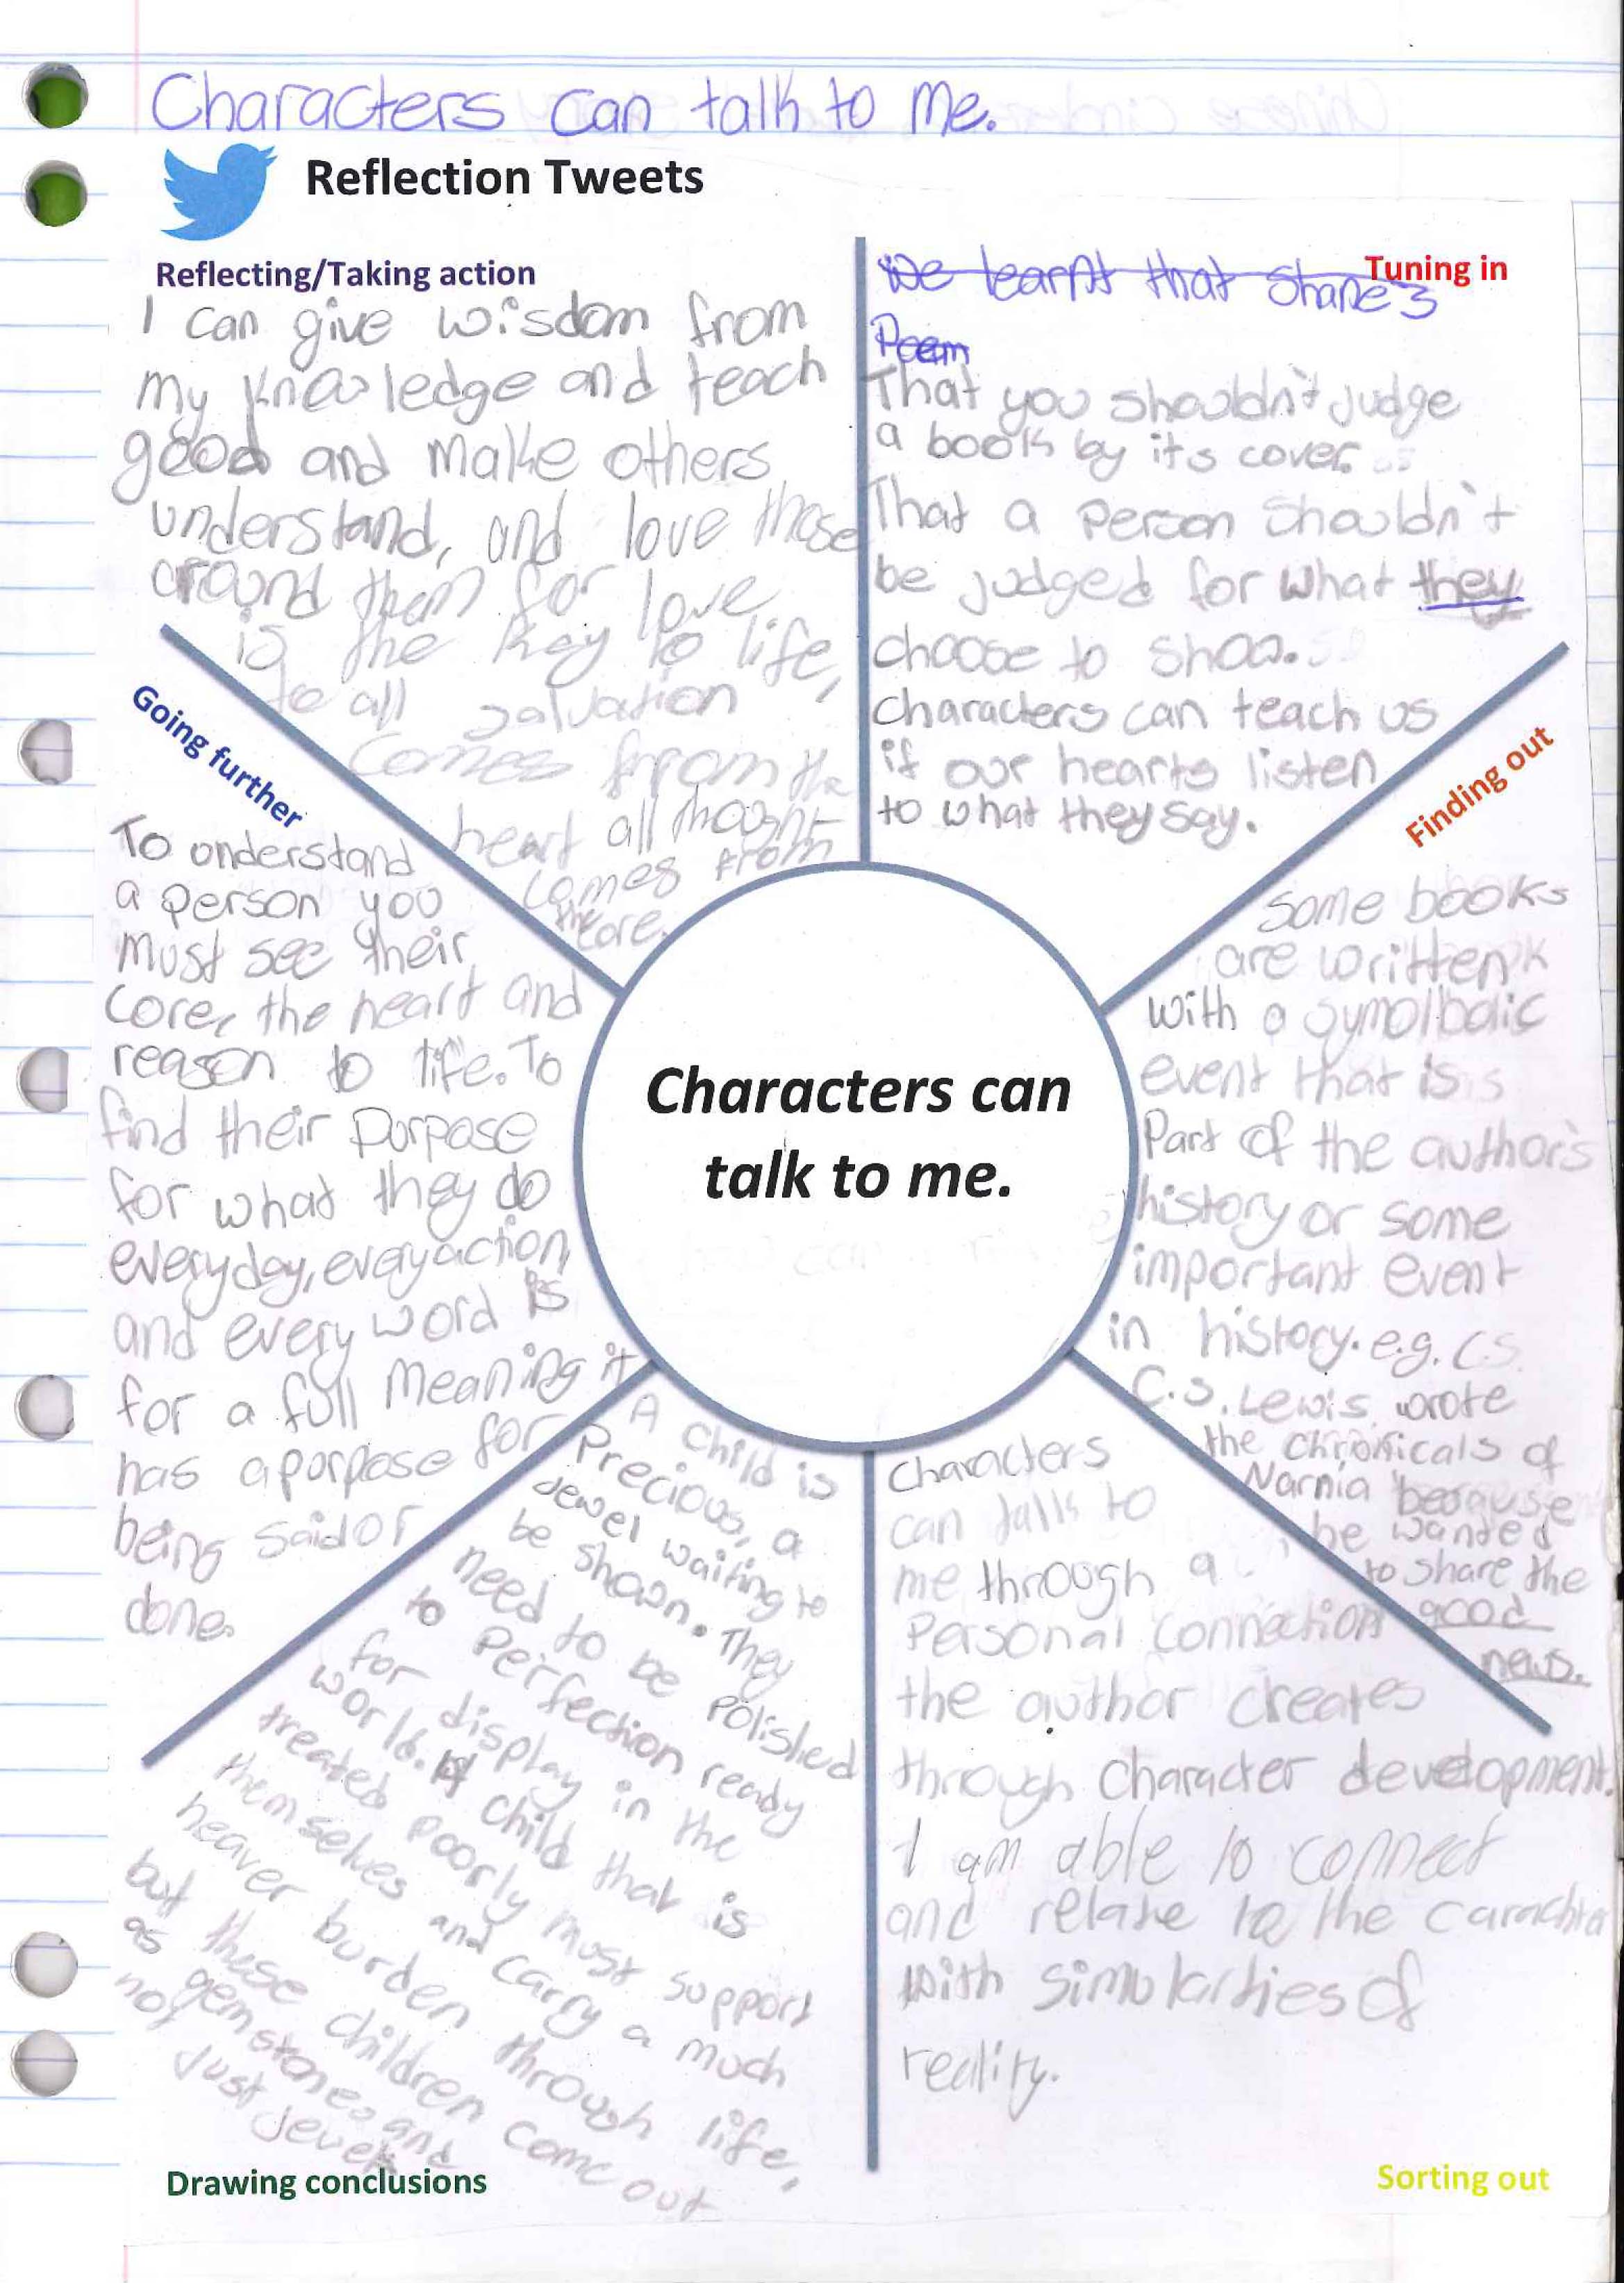 Characters can talk to me.
Reflection Tweets
Reflecting/Taking action
I can give wisdom from
my knowledge and teach
good and make others
understand, and love those
around them for love
is the key to life,
to all salvation
comes from the
heart all thought
comes from
the core.
Tuning in
We learnt that Shane's
Poem
That you shouldn't judge
a book by its cover.
That a person shouldn't
be judged for what they
choose to show.
characters can teach us
if our hearts listen
to what they say.
Finding out
Some books
are written
with a symolbolic
event that is
Part of the author's
history or some
important event
in history. e.g. C.S.
C.S. Lewis wrote
the chronicals of
Narnia because
he wanted
to share the
good
news.
Sorting out
Characters
can talk to
me through a
Personal connection
the author creates
through character development.
I am able to connect
and relate to the carachter
with simularties of
reality.
Drawing conclusions
A child is
Precious, a
Jewel waiting to
be shown. They
need to be Polished
to Perfection ready
for display in the
world. A child that is
treated poorly must support
themselves and carry a much
heaver burden through life,
but these children come out
as gemstones and
not just Jewels
Going further
To understand
a person you
must see their
core, the heart and
reason to life. To
find their purpose
for what they do
everyday, every action
and every word is
for a full meaning it
has a porpose for
being said or
done.
Characters can
talk to me.